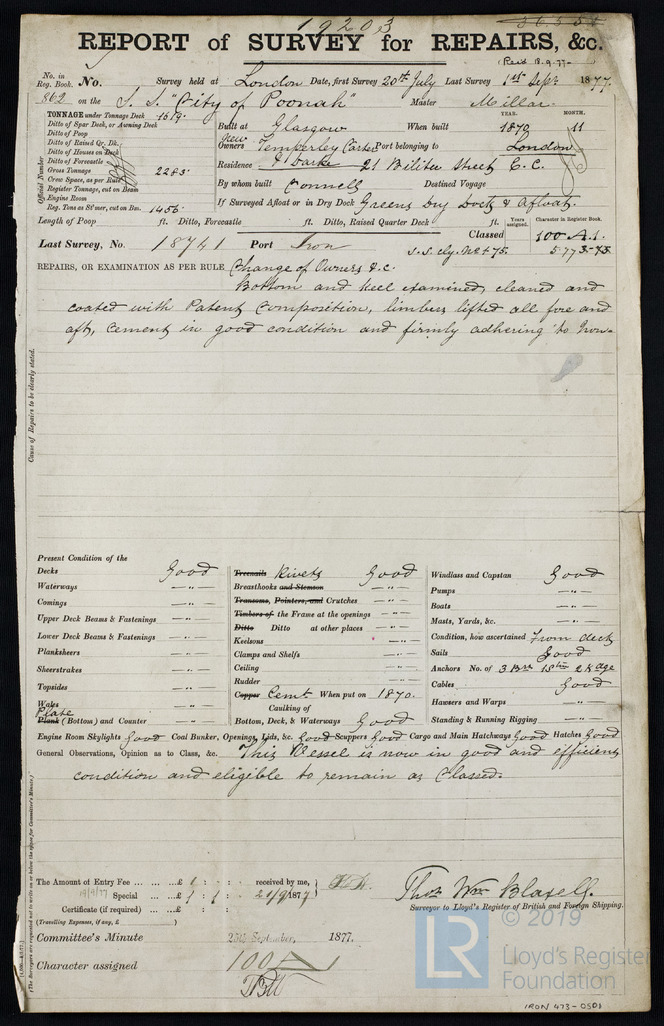 19203
36555
REPORT of SURVEY for REPAIRS, &c.
(Rec'd 18.9.77)
No. in Reg. Book. No. Survey held at London Date, first Survey 20th July Last Survey 1st Sept. 1877.
862 on the S.S. "City of Poonah" Master Millar
TONNAGE under Tonnage Deck 1619.
Ditto of Spar Deck, or Awning Deck
Ditto of Poop
Ditto of Raised Qr. Dk.
Ditto of Houses on Deck
Ditto of Forecastle
Gross Tonnage 2283.
Crew Space, as per Rule
Register Tonnage, cut on Beam
Engine Room
Reg. Tons as St'mer, cut on Bm. 1456.
Official Number
Built at Glasgow When built YEAR. 1870 MONTH. 11
New Owners Temperley Carter Port belonging to London
Residence & Darke 21 Billiter Street E.C.
By whom built Connells Destined Voyage
If Surveyed Afloat or in Dry Dock Greens Dry Dock & Afloat.
Length of Poop ft. Ditto, Forecastle ft. Ditto, Raised Quarter Deck ft.
Years assigned. Character in Register Book.
Classed 100 A.1.
Last Survey, No. 18741 Port Iron
REPAIRS, OR EXAMINATION AS PER RULE Change of Owners &c.
Bottom and keel examined, cleaned and
coated with Patent Composition, limbers lifted all fore and
aft, cement in good condition and firmly adhering to Iron.
Cause of Repairs to be clearly stated.
Present Condition of the
Decks Good
Waterways — " —
Comings — " —
Upper Deck Beams & Fastenings — " —
Lower Deck Beams & Fastenings — " —
Planksheers — " —
Sheerstrakes — " —
Topsides — " —
Wales
Plate
Plank (Bottom) and Counter — " —
Treenails Rivets Good
Breasthooks and Stemson — " —
Transoms, Pointers, and Crutches — " —
Timbers of the Frame at the openings — " —
Ditto Ditto at other places — " —
Keelsons — " —
Clamps and Shelfs — " —
Ceiling — " —
Rudder — " —
Copper Cemt. When put on 1870.
Caulking of
Bottom, Deck, & Waterways Good
Windlass and Capstan Good
Pumps — " —
Boats — " —
Masts, Yards, &c. — " —
Condition, how ascertained From deck
Sails Good
Anchors No. of 3 Bra 1 Stm 2 Kedge
Cables Good
Hawsers and Warps — " —
Standing & Running Rigging — " —
Engine Room Skylights Good Coal Bunker, Openings, Lids, &c. Good Scuppers Good Cargo and Main Hatchways Good Hatches Good
General Observations, Opinion as to Class, &c. This Vessel is now in good and efficient
condition and eligible to remain as Classed.
The Amount of Entry Fee ... ... ...£ : : received by me,
19/9/77 Special ... ...£ 1 : 1 : 21/9/1877
Certificate (if required) ... ...£ : :
(Travelling Expenses, if any, £ )
Thos Wm Blaxell.
Surveyor to Lloyd's Register of British and Foreign Shipping.
Committee's Minute 25th September, 1877.
Character assigned 100A
© 2019
LR Lloyd's Register
Foundation
IRON 473-0501